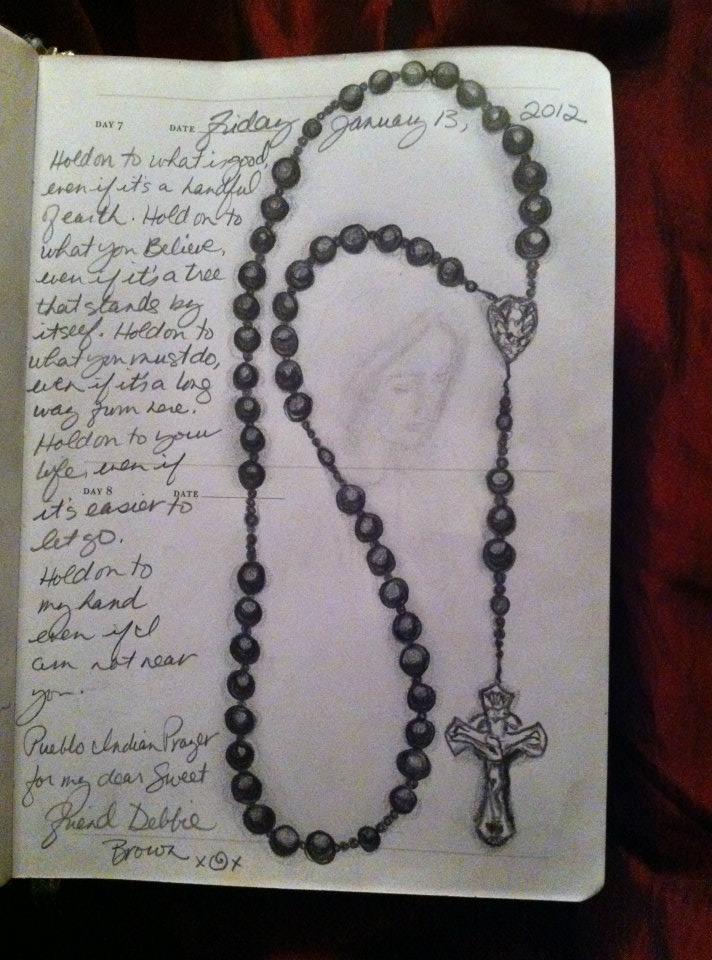 DAY 7 DATE Friday January 13, 2012
Hold on to what is good,
even if it's a handful
of earth. Hold on to
what you Believe,
even if it's a tree
that stands by
itself. Hold on to
what you must do,
even if it's a long
way from here.
Hold on to your
life, even if
DAY 8 DATE
it's easier to
let go.
Hold on to
my hand
even if I
am not near
you.
Pueblo Indian Prayer
for my dear Sweet
friend Debbie
Brown x☺x